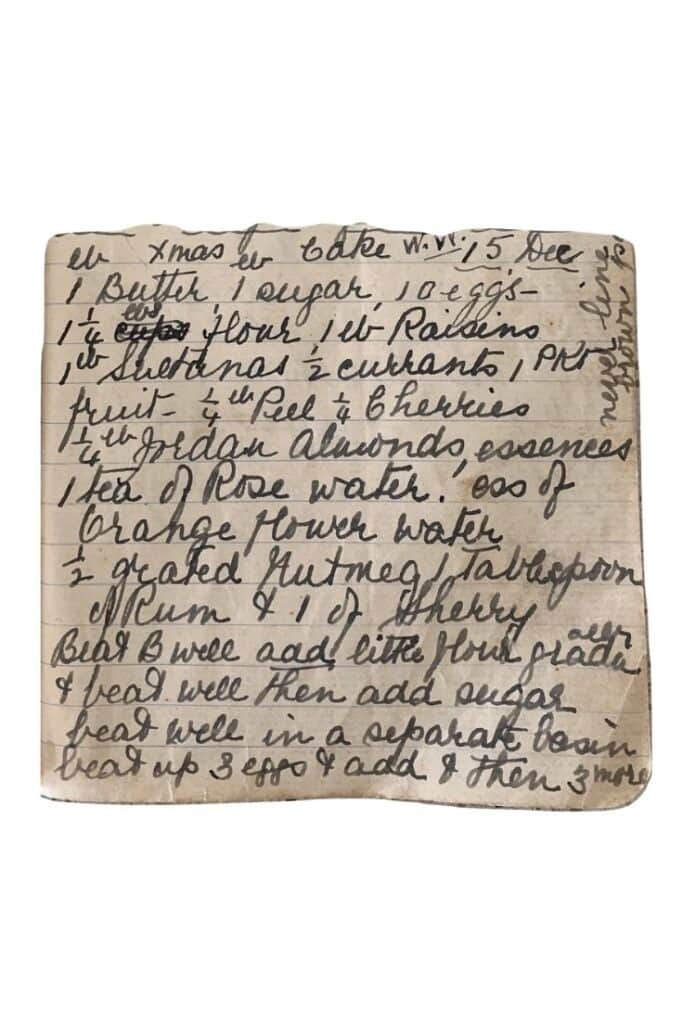 Xmas Cake W.W. 15 Dec
lb lb
1 Butter, 1 sugar, 10 eggs -
lbs
1 1/4 cups flour 1 lb Raisins
1 lb Sultanas 1/2 currants, 1 PKT
fruit - 1/4 lb Peel 1/4 Cherries
1/4 lb Jordan Almonds, essences
1 tea of Rose water. ess of
Orange flower water
1/2 grated Nutmeg 1 Tablespoon
of Rum & 1 of Sherry
Beat B well add little flour gradu
ally
& beat well then add sugar
beat well in a separate basin
beat up 3 eggs & add & then 3 more
never line
brown